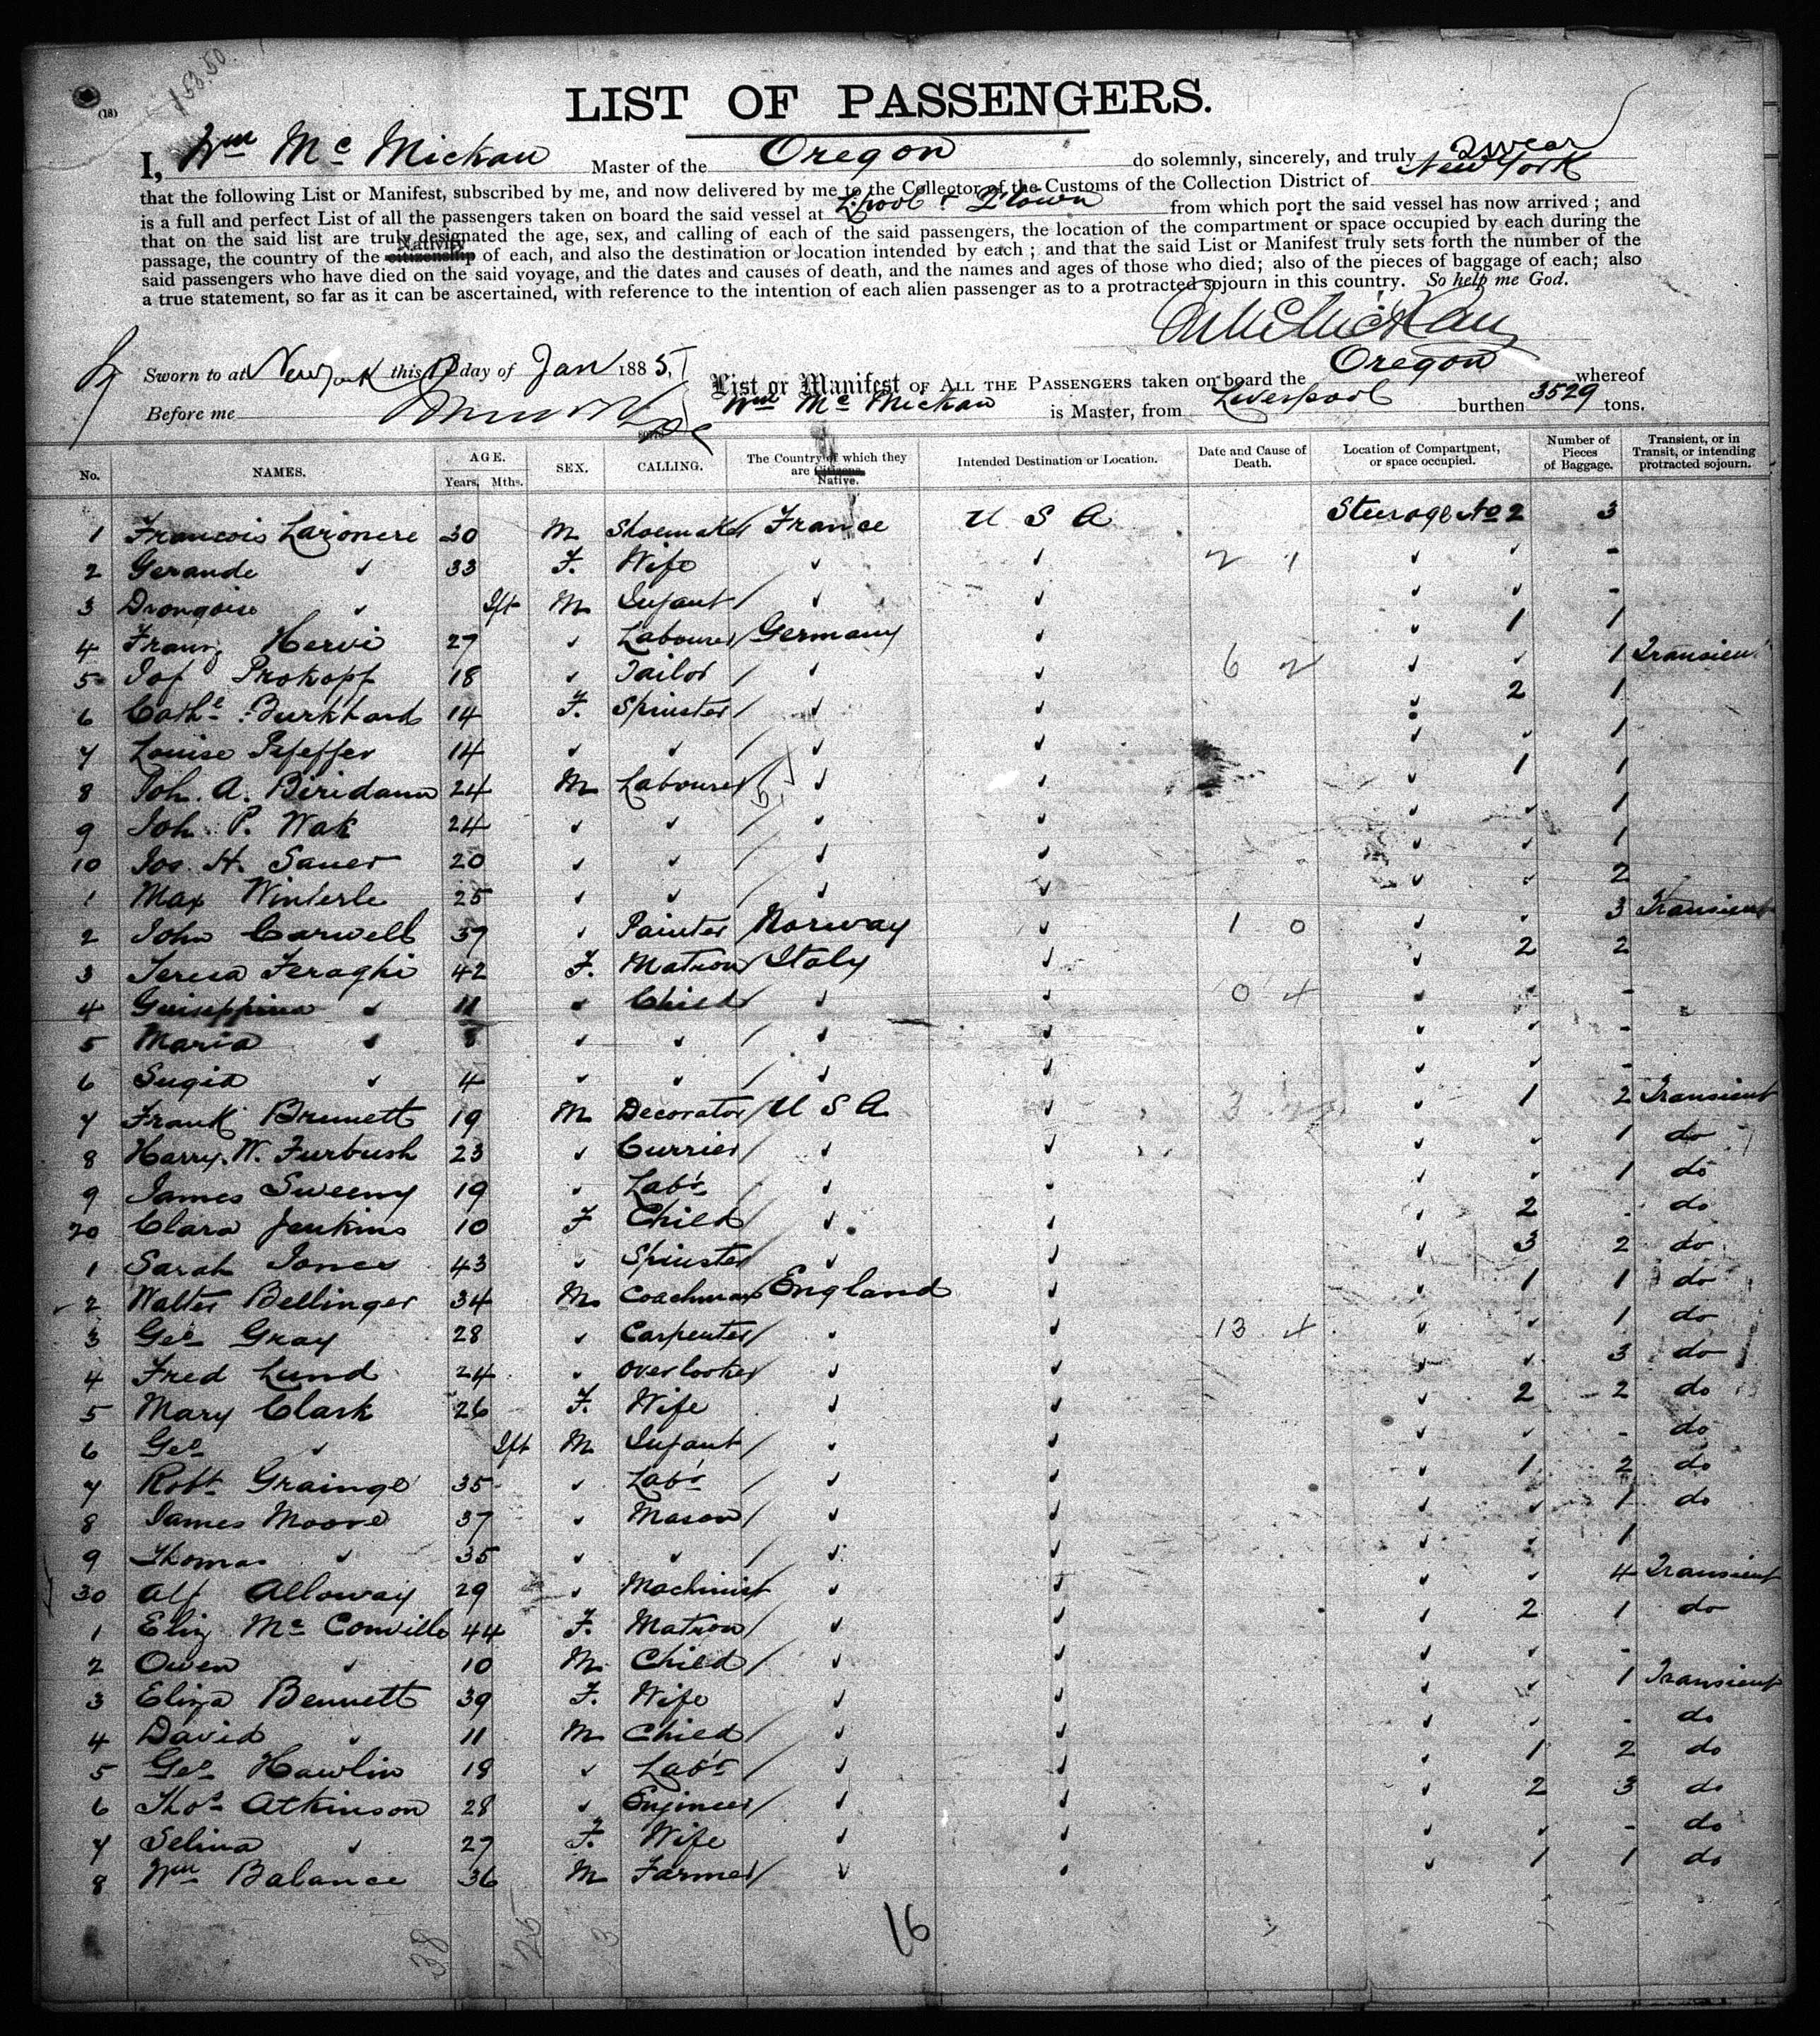 153.50
(18)
LIST OF PASSENGERS.
I, Wm Mc Mickan Master of the Oregon do solemnly, sincerely, and truly swear
that the following List or Manifest, subscribed by me, and now delivered by me to the Collector of the Customs of the Collection District of New York
is a full and perfect List of all the passengers taken on board the said vessel at L'pool & Q'town from which port the said vessel has now arrived ; and
that on the said list are truly designated the age, sex, and calling of each of the said passengers, the location of the compartment or space occupied by each during the
passage, the country of the citizenship Nativity of each, and also the destination or location intended by each ; and that the said List or Manifest truly sets forth the number of the
said passengers who have died on the said voyage, and the dates and causes of death, and the names and ages of those who died; also of the pieces of baggage of each; also
a true statement, so far as it can be ascertained, with reference to the intention of each alien passenger as to a protracted sojourn in this country. So help me God.
WMcMickan
Sworn to at New York this 12 day of Jan 1885,
List or Manifest OF ALL THE PASSENGERS taken on board the Oregon whereof
Before me
Wm Mc Mickan is Master, from Liverpool burthen 3529 tons.
No. NAMES. AGE. Years, Mths. SEX. CALLING. The Country of which they are Citizens. Native. Intended Destination or Location. Date and Cause of Death. Location of Compartment, or space occupied. Number of Pieces of Baggage. Transient, or in Transit, or intending protracted sojourn.
1 Francois Lazonere 30 M Shoemaker France U S A Steerage No 2 3
2 Gerande ✓ 33 F. Wife ✓ ✓ 2 1 ✓ ✓ -
3 Drongoise ✓ Ift M Infant ✓ ✓ ✓ ✓ -
4 Franz Hervi 27 ✓ Labourer Germany ✓ ✓ 1 1
5 Jof Prokopf 18 ✓ Tailor ✓ ✓ 6 2 ✓ ✓ 1 Transient
6 Cathe Burkhard 14 F. Spinster ✓ ✓ ✓ 2 1
7 Louise Pfeffer 14 ✓ ✓ ✓ ✓ ✓ ✓ 1
8 Joh. A. Biridann 24 M Labourer ✓ ✓ ✓ 1 1
9 Joh. P. Wak 24 ✓ ✓ ✓ ✓ ✓ ✓ 1
10 Jos. H. Sauer 20 ✓ ✓ ✓ ✓ ✓ ✓ 1
1 Max Winterle 25 ✓ ✓ ✓ ✓ ✓ ✓ 2
2 John Carwell 37 ✓ Painter Norway ✓ 1 0 ✓ ✓ 3 Transient
3 Teresa Feraghi 42 F. Matron Italy ✓ 2 2
4 Guiseppina ✓ 11 ✓ Child ✓ ✓ 0 4 ✓ ✓ -
5 Maria ✓ 8 ✓ ✓ ✓ ✓ ✓ ✓ -
6 Sugia ✓ 4 ✓ ✓ ✓ ✓ ✓ ✓ -
7 Frank Brunett 19 M Decorator U S A ✓ 3 2 ✓ 1 2 Transient
8 Harry. W. Furbush 23 ✓ Currier ✓ ✓ ✓ ✓ 1 do
9 James Sweeny 19 ✓ Labr ✓ ✓ ✓ ✓ 1 do
20 Clara Jenkins 10 F Child ✓ ✓ ✓ 2 . do
1 Sarah Jones 43 ✓ Spinster ✓ ✓ ✓ 3 2 do
2 Walter Bellinger 34 M. Coachman England ✓ ✓ 1 1 do
3 Geo Gray 28 ✓ Carpenter ✓ ✓ 13 4 ✓ ✓ 1 do
4 Fred Lund 24 ✓ Overlooker ✓ ✓ ✓ ✓ 3 do
5 Mary Clark 26 F. Wife ✓ ✓ ✓ 2 2 do
6 Geo ✓ Ift M Infant ✓ ✓ ✓ ✓ - do
7 Robt Grainge 35 ✓ Labr ✓ ✓ ✓ 1 2 do
8 James Moore 37 ✓ Mason ✓ ✓ ✓ ✓ 1 do
9 Thomas ✓ 35 ✓ ✓ ✓ ✓ ✓ ✓ 1
30 Alf Alloway 29 ✓ Machinist ✓ ✓ ✓ ✓ 4 Transient
1 Eliz Mc Conville 44 F. Matron ✓ ✓ ✓ 2 1 do
2 Owen ✓ 10 M. Child ✓ ✓ ✓ ✓ -
3 Eliza Bennett 39 F. Wife ✓ ✓ ✓ ✓ 1 Transient
4 David ✓ 11 M Child ✓ ✓ ✓ ✓ - do
5 Geo Hawlin 18 ✓ Labr ✓ ✓ ✓ 1 2 do
6 Thos Atkinson 28 ✓ Engineer ✓ ✓ ✓ 2 3 do
7 Selina ✓ 27 F. Wife ✓ ✓ ✓ ✓ - do
8 Wm Balance 36 M Farmer ✓ ✓ ✓ 1 1 do
38 26 3 16